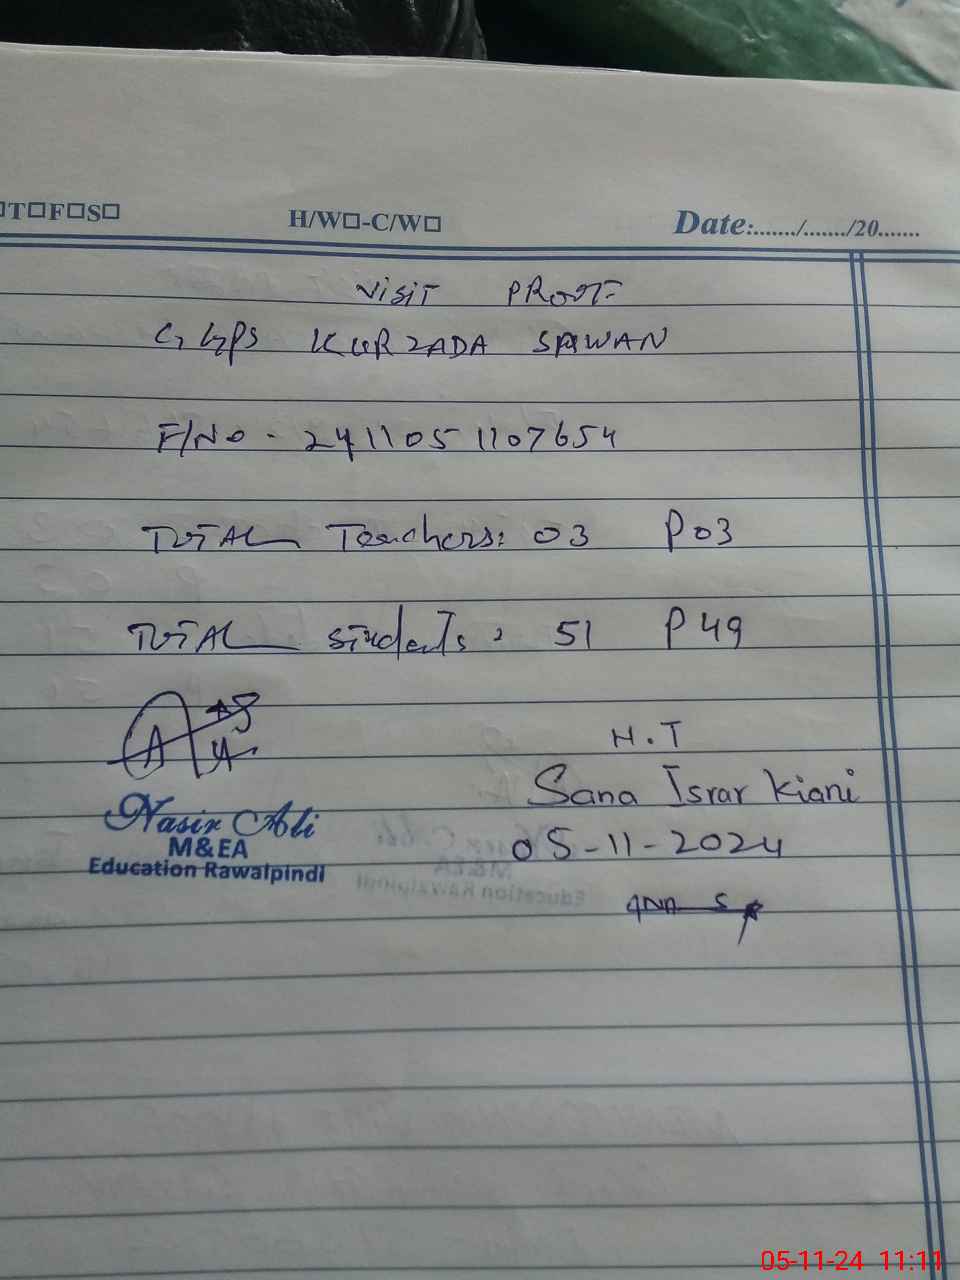 T☐F☐S☐ H/W☐-C/W☐ Date:......./......./20.......
VISIT PROOF
GGPS KURZADA SAWAN
F/NO - 2411051107654
TOTAL Teachers: 03 P03
TOTAL students: 51 P49
H.T
Sana Israr Kiani
05-11-2024
Nasir Ali
M&EA
Education Rawalpindi
05-11-24 11:11